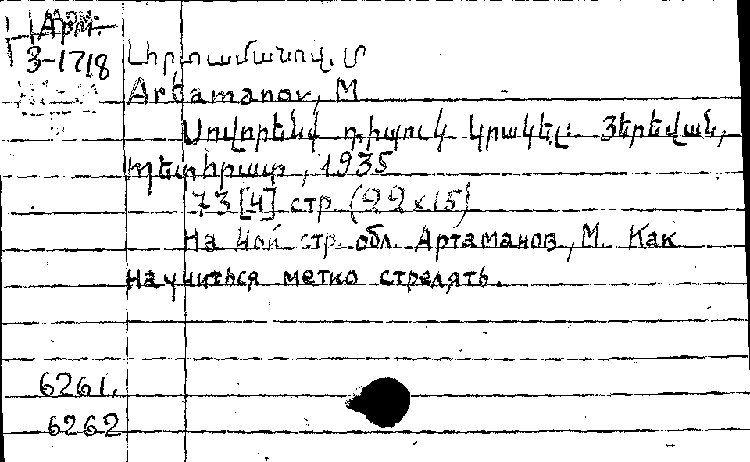 Арм.
3-1718
Արտամանով, Մ
Artamanov, M
Սովորենք դիպուկ կրակել: Յերեվան,
Պետհրատ, 1935
73 [4] стр. (22x15)
На 4ой стр. обл. Артаманов, М. Как
научиться метко стрелять.
6261.
6262